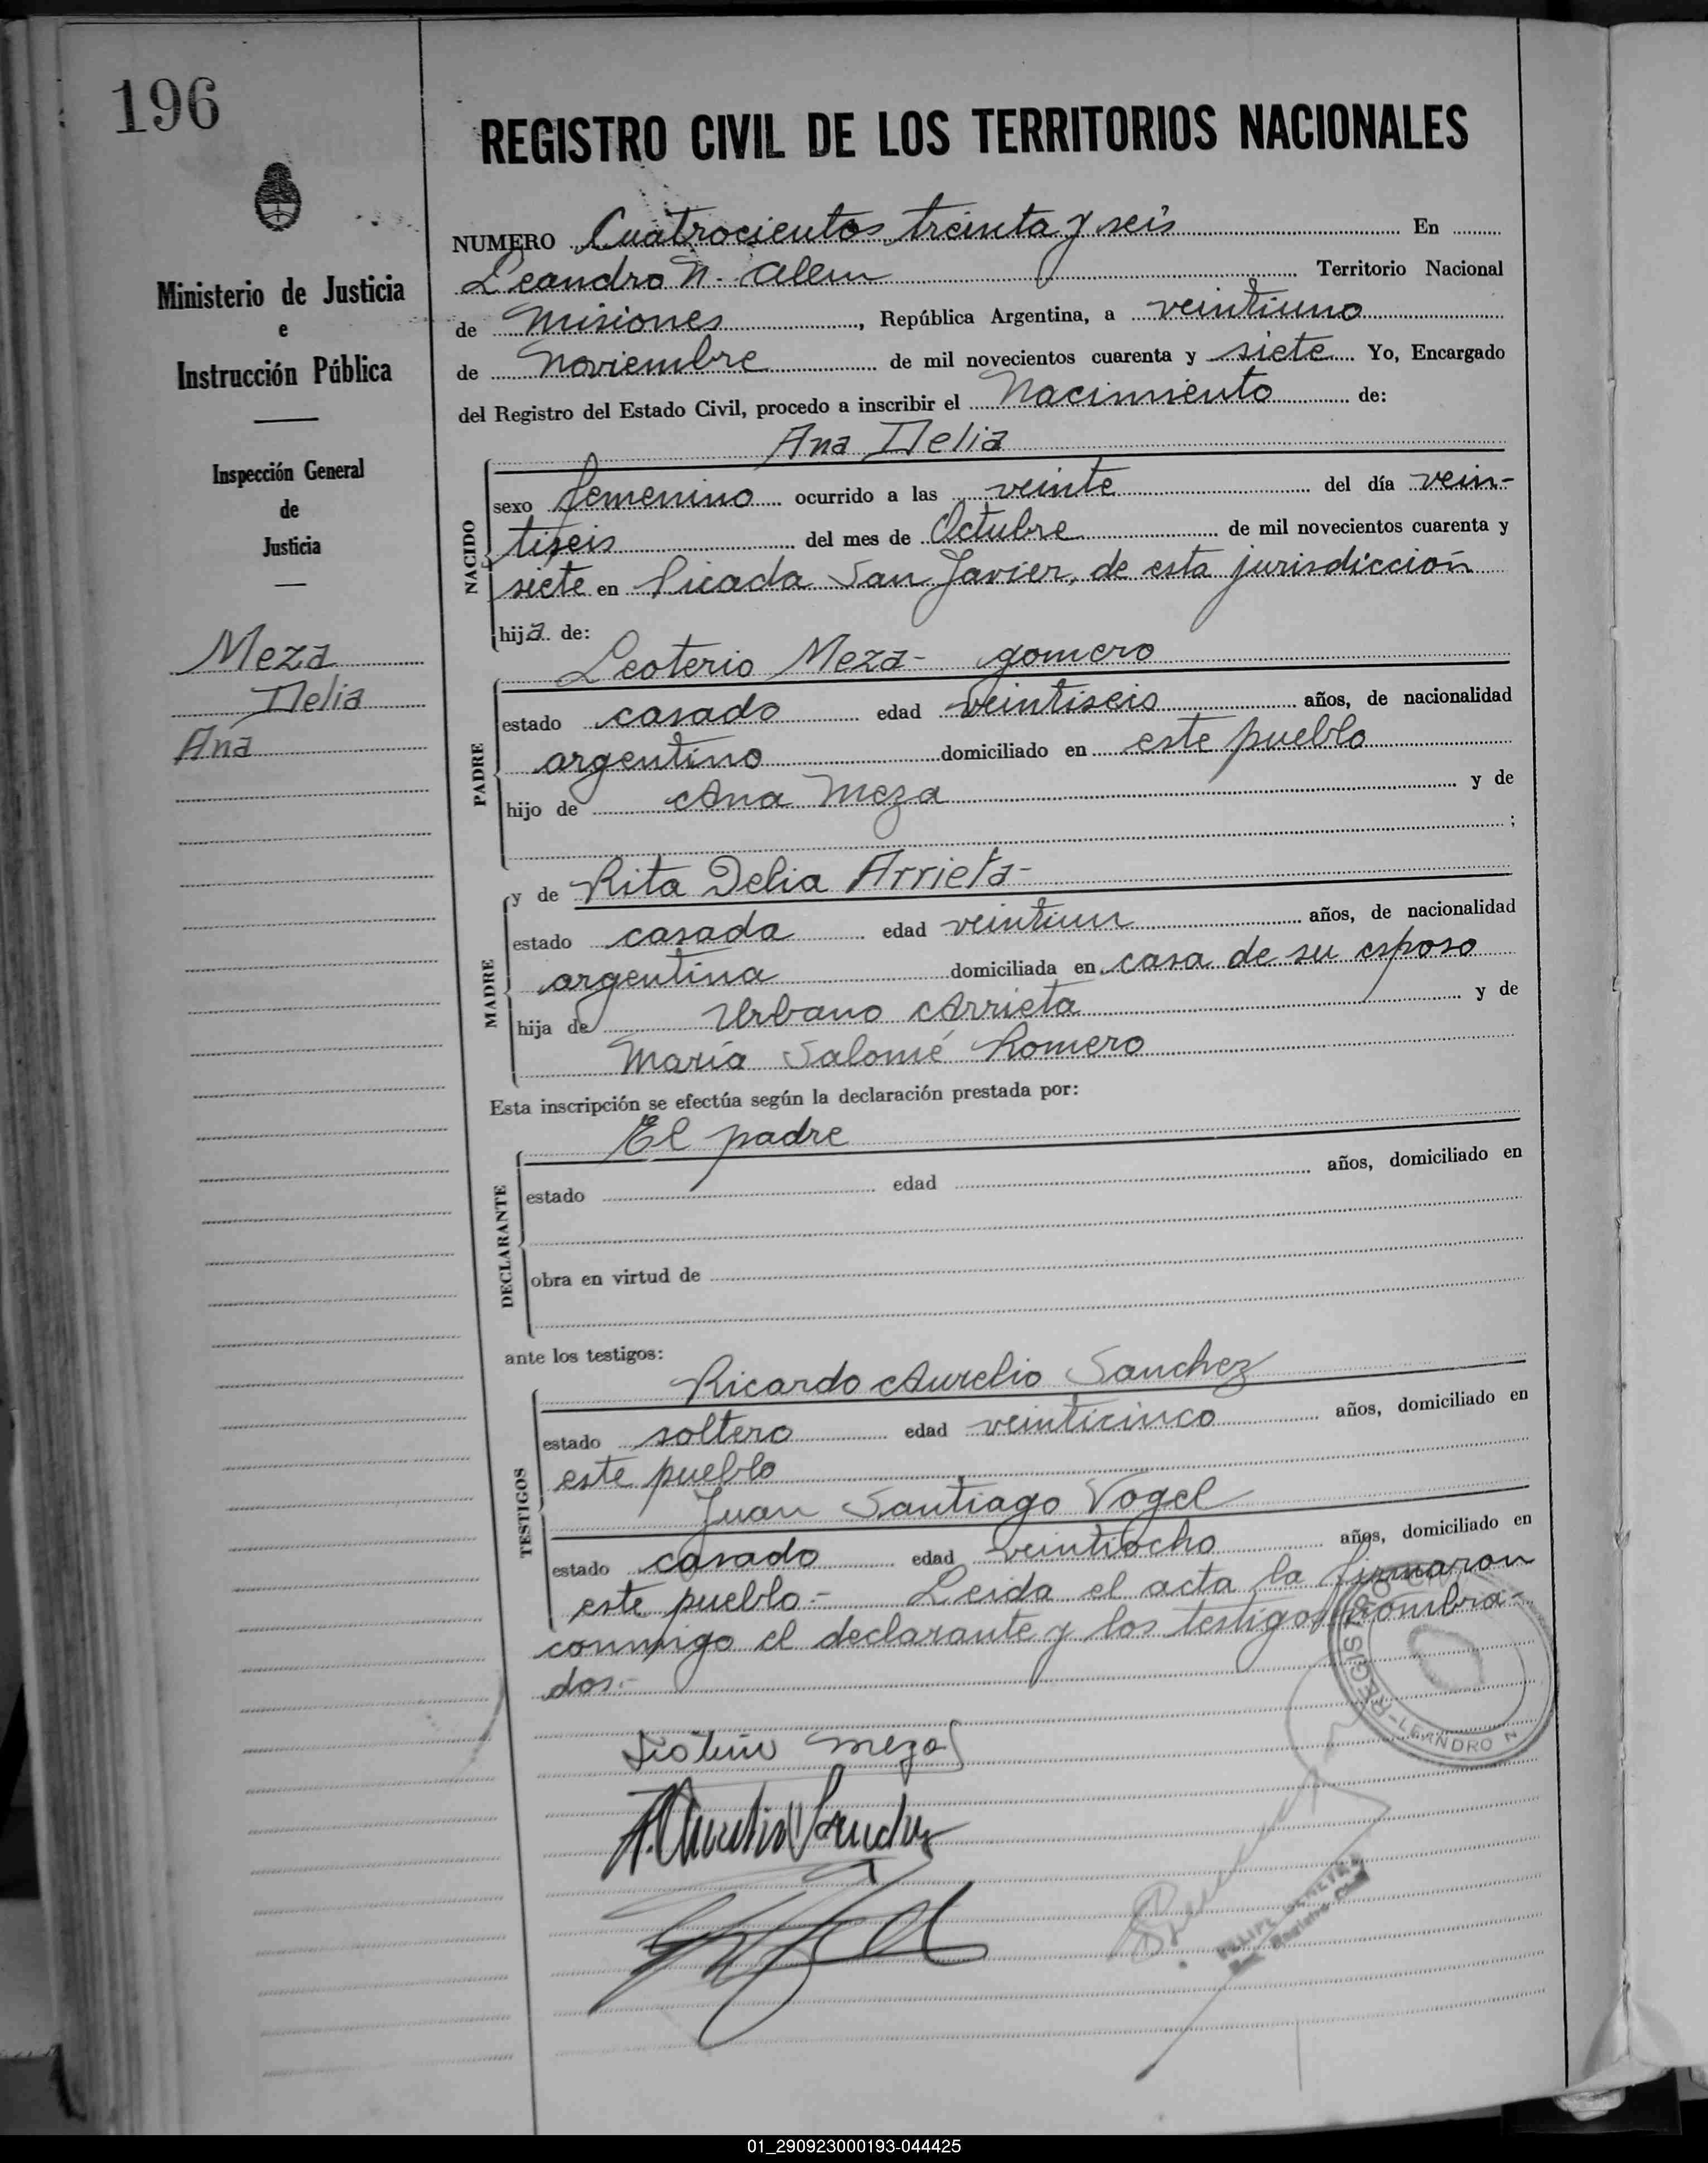 196
REGISTRO CIVIL DE LOS TERRITORIOS NACIONALES
Ministerio de Justicia
e
Instrucción Pública
Inspección General
de
Justicia
Meza
Delia
Ana
NUMERO Cuatrocientos treinta y seis En
Leandro N. Alem Territorio Nacional
de Misiones, República Argentina, a veintiuno
de Noviembre de mil novecientos cuarenta y siete Yo, Encargado
del Registro del Estado Civil, procedo a inscribir el Nacimiento de:
Ana Delia
NACIDO
sexo femenino ocurrido a las veinte del día vein-
tiseis del mes de Octubre de mil novecientos cuarenta y
siete en Picada San Javier, de esta jurisdicción
hija de:
Leoterio Meza- gomero
PADRE
estado casado edad veintiseis años, de nacionalidad
argentino domiciliado en este pueblo
hijo de Ana Meza y de
;
y de Rita Delia Arrieta-
MADRE
estado casada edad veintiun años, de nacionalidad
argentina domiciliada en casa de su esposo
hija de Urbano Arrieta y de
María Salomé Romero
Esta inscripción se efectúa según la declaración prestada por:
El padre
DECLARANTE
estado edad años, domiciliado en
obra en virtud de
ante los testigos:
Ricardo Aurelio Sanchez
TESTIGOS
estado soltero edad veinticinco años, domiciliado en
este pueblo
Juan Santiago Vogel
estado casado edad veintiocho años, domiciliado en
este pueblo.- Leida el acta la firmaron
conmigo el declarante y los testigos nombra-
dos.-
REGISTRO CIVIL
-LEANDRO N
Meza
Sanchez
FELIPE
Registro Civil
01_290923000193-044425